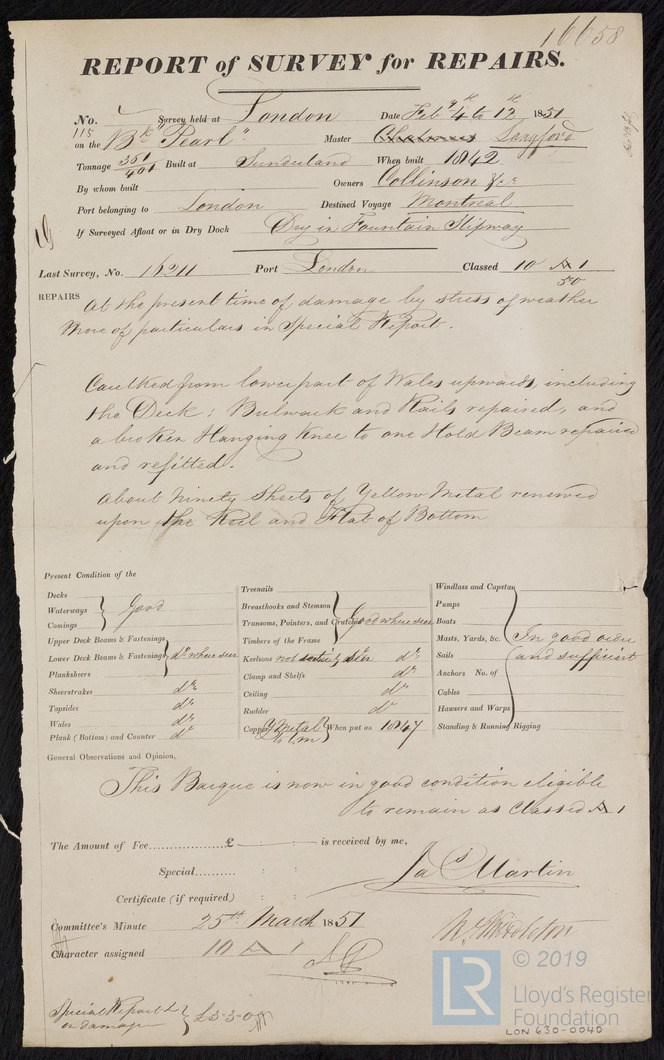 16658
REPORT of SURVEY for REPAIRS.
No. 115 Survey held at London Date Feby 4th to 12th 1851
on the Bk "Pearl" Master Langford
Tonnage 361/401 Built at Sunderland When built 1842
By whom built Owners Collinson &c
Port belonging to London Destined Voyage Montreal
If Surveyed Afloat or in Dry Dock Dry in Fountain Slipway
Last Survey, No. 16211 Port London Classed 10 A 1
50
REPAIRS At the present time of damage by stress of weather
More of particulars in Special Report.
Caulked from lower part of Wales upwards, including
the Deck; Bulwark and Rails repaired, and
a broken Hanging Knee to one Hold Beam repaired
and refitted.
About Ninety Sheets of Yellow Metal renewed
upon the Keel and Flat of Bottom
Present Condition of the
Decks
Waterways } Good
Comings
Upper Deck Beams & Fastenings
Lower Deck Beams & Fastenings } do where seen
Planksheers
Sheerstrakes do
Topsides do
Wales do
Plank (Bottom) and Counter do
Treenails
Breasthooks and Stemson
Transoms, Pointers, and Crutches } Good where seen
Timbers of the Frame
Keelsons not seen do
Clamp and Shelfs do
Ceiling do
Rudder do
Copper Y Metal When put on 1847
Windlass and Capstan
Pumps
Boats
Masts, Yards, &c. In good order
Sails and sufficient
Anchors No. of
Cables
Hawsers and Warps
Standing & Running Rigging
General Observations and Opinion,
This Barque is now in good condition eligible
to remain as Classed A 1
The Amount of Fee..................£ : : is received by me,
Special.......... : Jas Martin
Certificate (if required) :
Committee's Minute 25th March 1851
Character assigned 10 A 1
Special Report
on damage } £5-5-0
© 2019
LR
Lloyd's Register
Foundation
LON 630-0040